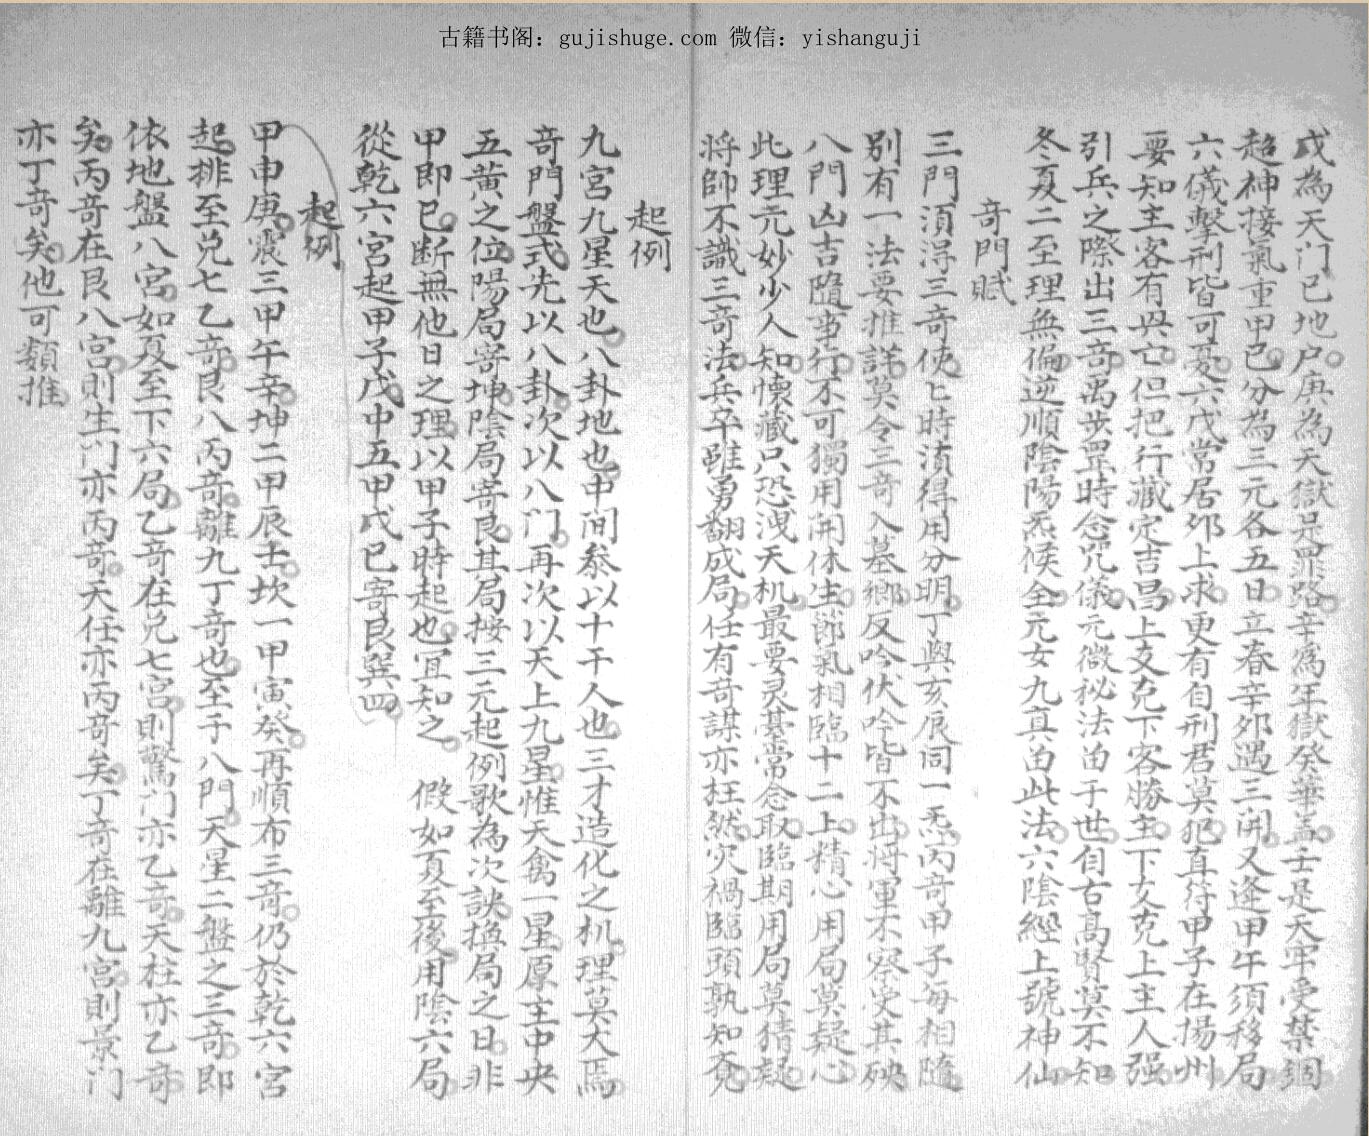 古籍书阁：gujishuge.com 微信：yishanguji
戊為天门已地户庚為天獄是罪路辛為牢獄癸華盖壬是天牢受禁錮
超神接氣重甲已分為三元各五日立春辛夘遇三開又逢甲午須移局
六儀擊刑皆可憂六戊常居夘上求更有自刑君莫犯直符甲子在揚州
要知主客有興亡但把行藏定吉昌上支克下客勝主下支克上主人强
引兵之際出三奇禹步罡時念咒儀元微秘法由于世自古高賢莫不知
冬夏二至理無偏逆順陰陽炁候全元女九真由此法六陰經上號神仙
奇門賦
三門須得三奇使匕時湏得用分明丁與亥辰同一炁丙奇甲子每相隨
别有一法要推詳莫令三奇入墓鄉反吟伏吟皆不出将軍不察受其殃
八門凶吉隨事行不可獨用開休生節氣相臨十二上精心用局莫疑心
此理元妙少人知懷藏只恐洩天机最要灵基常念取臨期用局莫猜疑
将帥不識三奇法兵卒雖勇翻成局任有奇謀亦枉然灾禍臨頭孰知覔
起例
九宮九星天也八卦地也中间叅以十干人也三才造化之机理莫大焉
奇門盤式先以八卦次以八门再次以天上九星惟天禽一星原主中央
五黄之位陽局寄坤陰局寄艮其局按三元起例歌為次訣值局之日非
甲即已断無他日之理以甲子時起也宜知之　假如夏至後用陰六局
從乾六宮起甲子戊中五甲戌已寄艮巽四
起例
甲申庚震三甲午辛坤二甲辰壬坎一甲寅癸再順布三奇仍於乾六宮
起排至兑七乙奇艮八丙奇離九丁奇也至于八門天星二盤之三奇即
依地盤八宮如夏至下六局乙奇在兑七宮則驚门亦乙奇天柱亦乙奇
矣丙奇在艮八宮則生门亦丙奇天任亦丙奇矣丁奇在離九宮則景门
亦丁奇矣他可類推